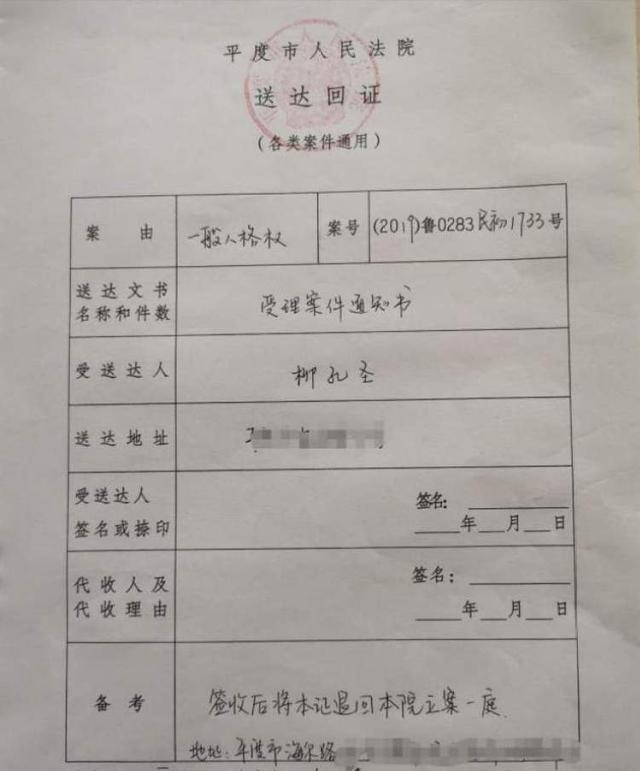 平度市人民法院
送达回证
(各类案件通用)
案由 一般人格权 案号 (2019)鲁0283民初1733号
送达文书
名称和件数 受理案件通知书
受送达人 柳孔圣
送达地址
受送达人 签名:
签名或捺印 年 月 日
代收人及 签名:
代收理由 年 月 日
备考 签收后将本证退回本院立案一庭
地址:平度市海尔路